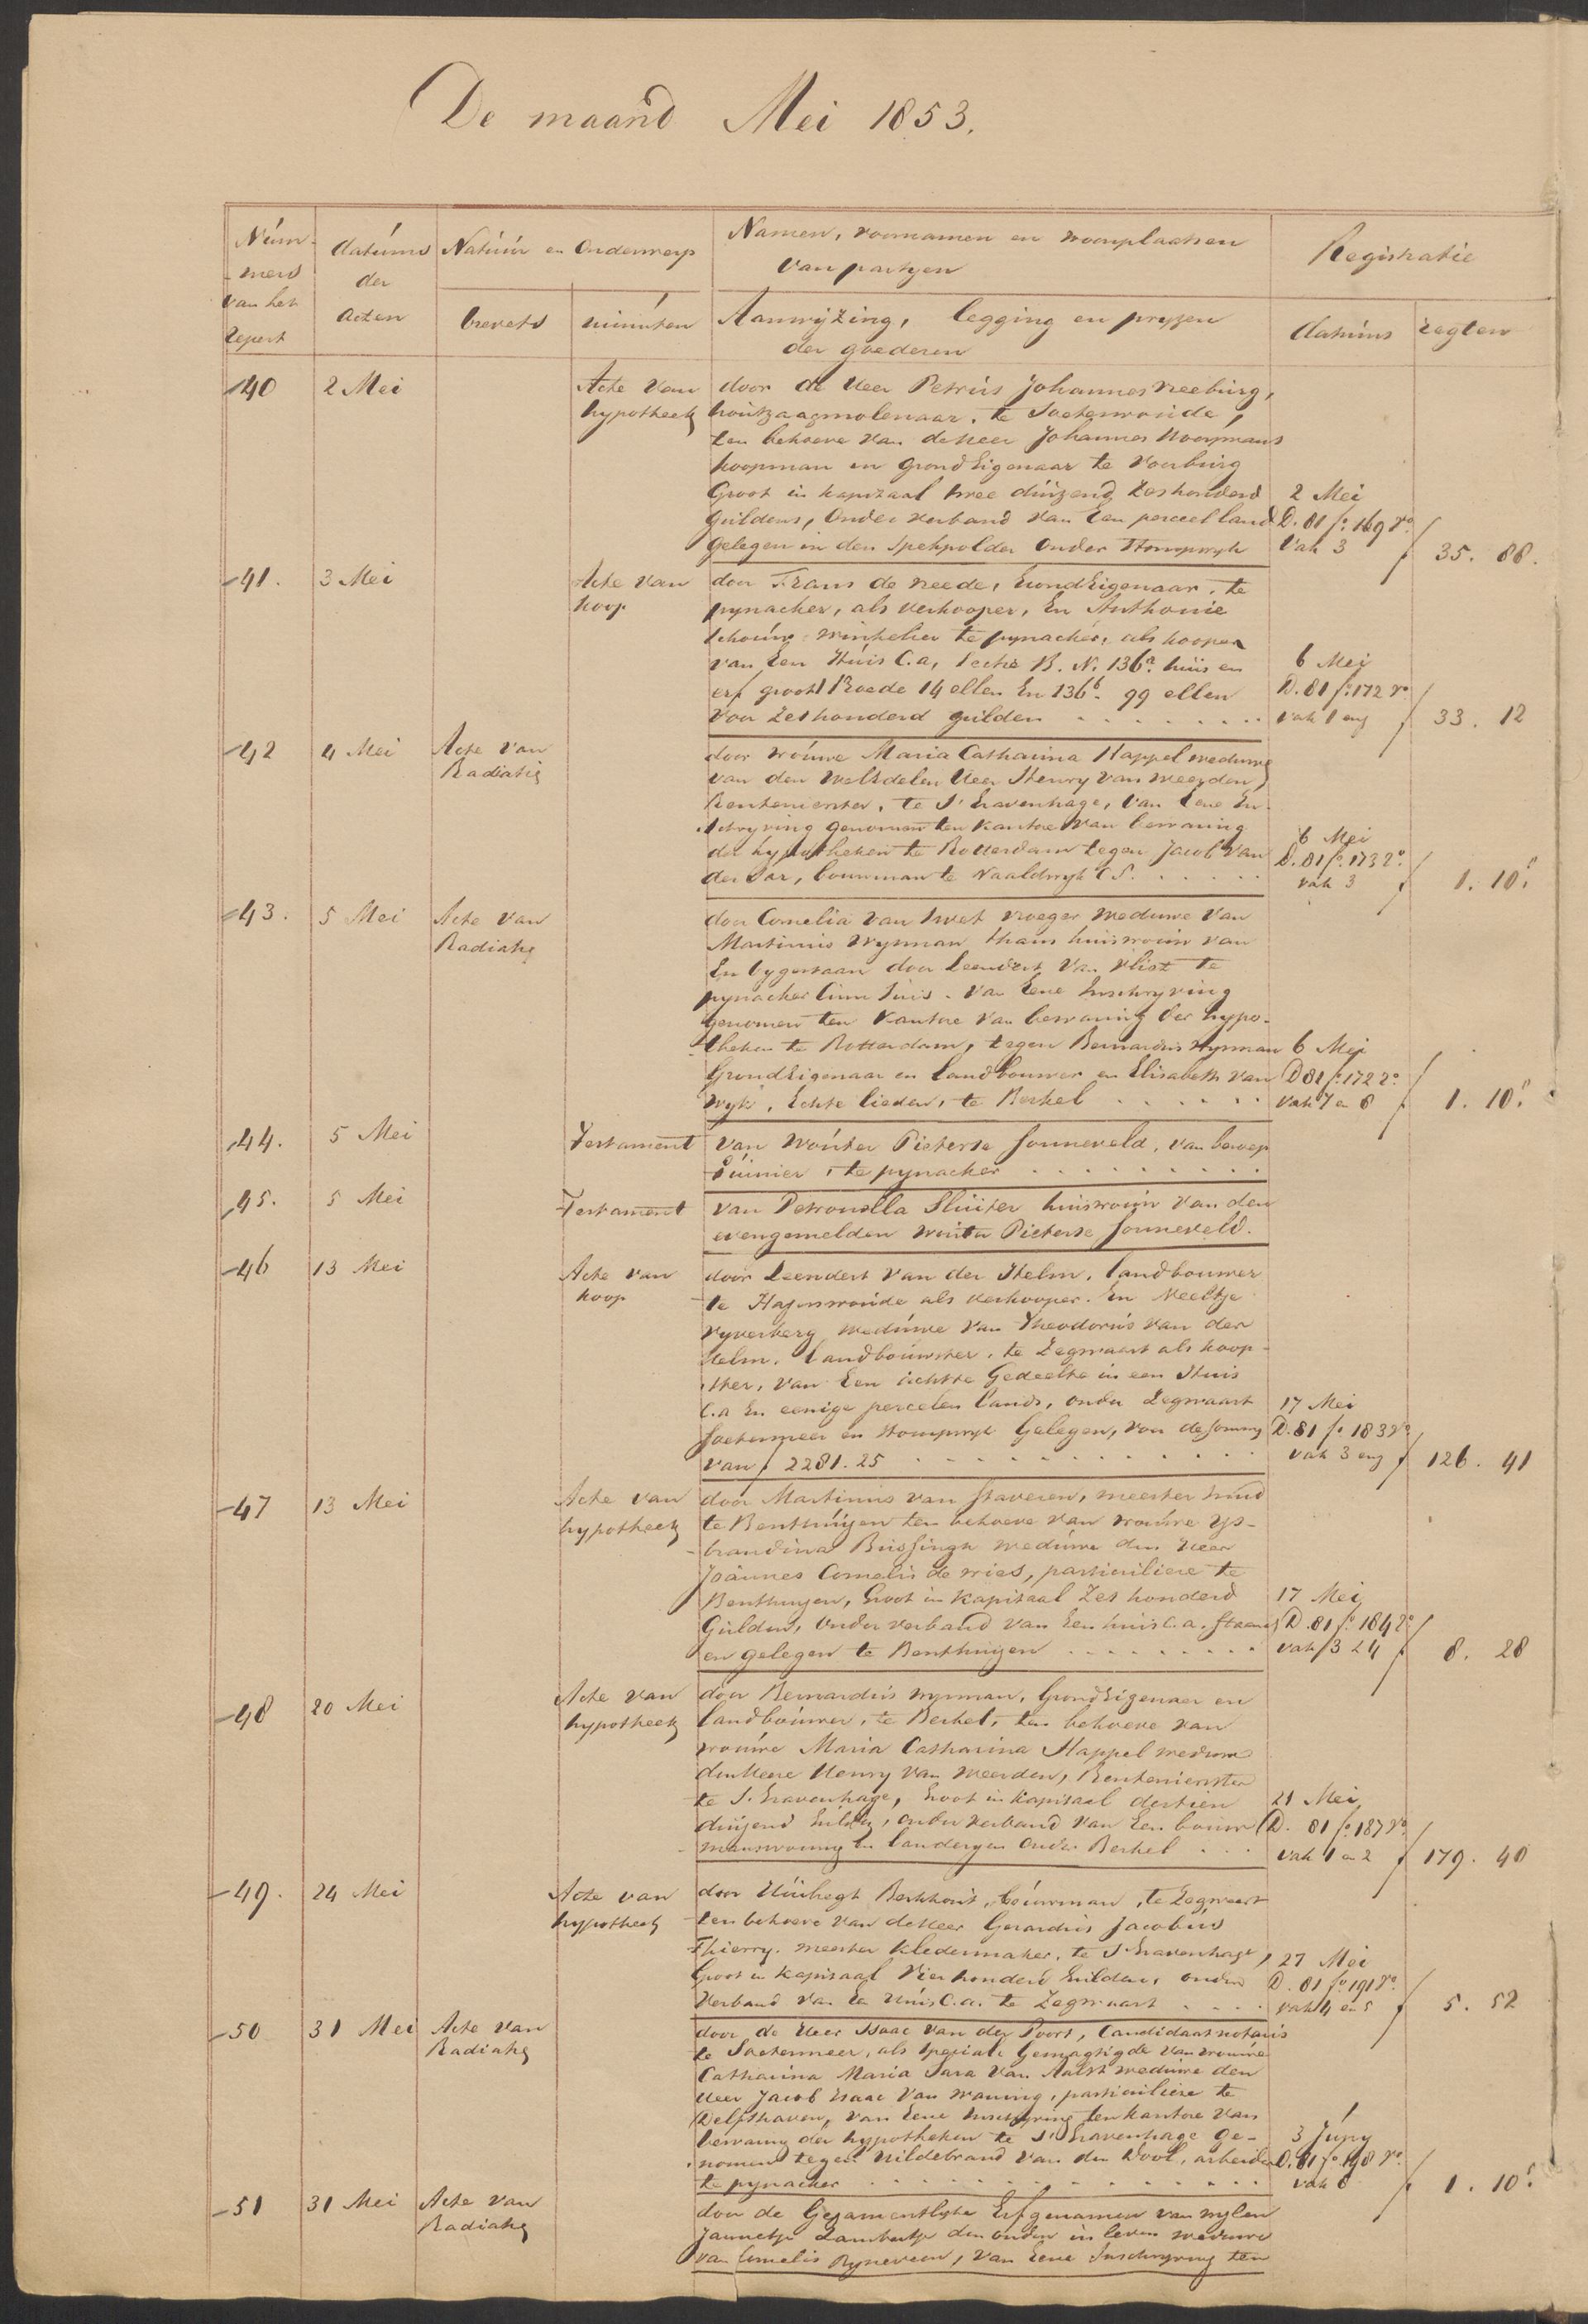 De maand Mei 1853.
Num-
mers
van het
Repert
datums
der
Acten
Natuur en Onderwerp
brevets
minuten
Namen, voornamen en woonplaatsen
van partyen
Aanwyzing, legging en pryzen
der goederen
Registratie
datums
regten
40
2 Mei
Acte van
hypotheek
door de Heer Petrus Johannes Vreeburg,
houtzaagmolenaar, te Soeterwoude,
ten behoeve van de Heer Johannes Noorman
koopman en GrondEigenaar te Voorburg
Groot in kapitaal twee duizend Zeshonderd
guldens, Onder verband van Een perceel land
gelegen in den Spekpolder Onder Stompwyk
2 Mei
D. 81 fo. 169 Vo.
Vak 3
f 35. 88.
41.
3 Mei
Acte van
koop
door Frans de Reede, GrondEigenaar, te
pynacker, als verkooper, En Anthonie
Schouw winkelier te pynacker, als kooper
van Een Huis C.a, Sectie B. N. 136a. huis en
erf groot 1 Roede 14 ellen En 136b. 99 ellen
Voor Zeshonderd gulden
6 Mei
D. 81 fo. 172 Vo.
vak 1 env
f 33. 12
42
4 Mei
Acte van
Radiatie
door vrouwe Maria Catharina Happel weduwe
van den WelEdelen Heer Henry van Weerden,
Rentenierster, te S' Gravenhage, van Eene In-
schryving genomen ten Kantore van bewaring
der hypotheken te Rotterdam tegen Jacob van
der Sar, bouwman te Naaldwyk C.S.
6 Mei
D. 81 fo. 173 Vo.
vak 3
f 1. 10.5
43.
5 Mei
Acte van
Radiatie
door Cornelia van Swet vroeger Weduwe van
Martinus Wynman thans huisvrouw van
En bygestaan door Leendert van Vliet te
pynacker Cum Suis. van Eene Inschryving
genomen ten Kantore van bewaring der hypo-
theken te Rotterdam, tegen Bernardus Wynman
GrondEigenaar en landbouwer en Elisabeth van
Wyk, Echte lieden, te Berkel
6 Mei
D 81 fo. 172 Vo.
vak 7 en 8
f 1. 10.5
44.
5 Mei
Testament
van Wouter Pieterse Sonneveld, van beroep
tuinier, te pynacker
45.
5 Mei
Testament
van Petronella Sluiter huisvrouw van den
evengemelden Wouter Pieterse Sonneveld.
46
13 Mei
Acte van
koop
door Leendert van der Helm, landbouwer
te Hazerswoude als verkooper. En Neeltje
Vyverberg weduwe van Theodorus van der
Helm, landbouwster, te Zegwaart als koop-
ster, van Een achtste Gedeelte in een Huis
C.a En eenige perceelen land, onder Zegwaart
Soetermeer en Stompwyk Gelegen, voor de somma
van f 2281. 25
17 Mei
D. 81 fo. 183 Vo.
vak 3 env
f 126. 41
47
13 Mei
Acte van
hypotheek
door Martinus van Staveren, meester smid
te Benthuizen ten behoeve van vrouwe Ys-
brandina Bussingh weduwe den Heer
Joannes Cornelis de Vries, particuliere te
Benthuizen, Groot in Kapitaal Zes honderd
Gulden, Onder verband van Een huis C.a. staande
en gelegen te Benthuizen
17 Mei
D. 81 fo. 184 Vo.
vak 3 & 4
f 8. 28
48
20 Mei
Acte van
hypotheek
door Bernardus Wynman, GrondEigenaar en
landbouwer, te Berkel, ten behoeve van
vrouwe Maria Catharina Happel weduwe
den Heere Henry van Weerden, Rentenierster
te S. Gravenhage, Groot in Kapitaal dertien
duizend Gulden, onder verband van Een bouw-
manswoning En landeryen Onder Berkel
21 Mei
D. 81 fo. 187 Vo.
vak 1 en 2
f 179. 40
49.
24 Mei
Acte van
hypotheek
door Huibregt Berkhout, bouwman, te Zegwaart
ten behoeve van de Heer Gerardus Jacobus
Thierry. meester Kledermaker, te S'Gravenhage,
Groot in Kapitaal Vierhonderd Gulden, onder
Verband van Een Huis C.a. te Zegwaart
27 Mei
D. 81 fo. 191 Vo.
vak 4 en 5
f 5. 52
50
31 Mei
Acte van
Radiatie
door de Heer Isaac van der Poort, Candidaat notaris
te Soetermeer, als Speciale Gemagtigde van vrouwe
Catharina Maria Sara van Aalst weduwe den
Heer Jacob Isaac van Waning, particuliere te
Delfshaven, van Eene Inschryving ten kantore van
bewaring der hypotheken te S'Gravenhage ge-
nomen tegen Hildebrand van den Dool, arbeider
te pynacker
3 Juny
D. 81 fo. 198 Vo.
vak 8
f 1. 10.5
51
31 Mei
Acte van
Radiatie
door de Gezamentlyke Erfgenamen van wylen
Jannetje Lambertje den ouden in leven weduwe
van Cornelis Ryneveen, van Eene Inschryving ten